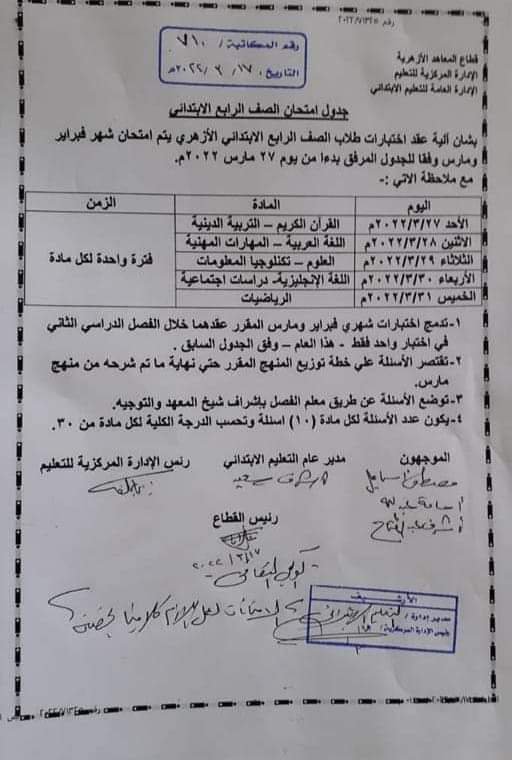 رقم ٢٠٢٢/٧١٣٤٥
قطاع المعاهد الأزهرية
الإدارة المركزية للتعليم
الإدارة العامة للتعليم الابتدائي
رقم المكاتبة / ٧١٠
التاريخ ١٧ / ٣ / ٢٠٢٢م
جدول امتحان الصف الرابع الابتدائي
بشان ألية عقد اختبارات طلاب الصف الرابع الابتدائي الأزهري يتم امتحان شهر فبراير
ومارس وفقا للجدول المرفق بدءا من يوم ٢٧ مارس ٢٠٢٢م.
مع ملاحظة الاتي :-
اليوم المادة الزمن
الأحد ٢٠٢٢/٣/٢٧م القرآن الكريم – التربية الدينية
الاثنين ٢٠٢٢/٣/٢٨م اللغة العربية – المهارات المهنية
الثلاثاء ٢٠٢٢/٣/٢٩م العلوم – تكنلوجيا المعلومات فترة واحدة لكل مادة
الأربعاء ٢٠٢٢/٣/٣٠م اللغة الإنجليزية- دراسات اجتماعية
الخميس ٢٠٢٢/٣/٣١م الرياضيات
١-تدمج اختبارات شهري فبراير ومارس المقرر عقدهما خلال الفصل الدراسي الثاني
في اختبار واحد فقط - هذا العام – وفق الجدول السابق .
٢-تقتصر الأسئلة علي خطة توزيع المنهج المقرر حتي نهاية ما تم شرحه من منهج
مارس.
٣-توضع الأسئلة عن طريق معلم الفصل بإشراف شيخ المعهد والتوجيه.
٤-يكون عدد الأسئلة لكل مادة (١٠) اسئلة وتحسب الدرجة الكلية لكل مادة من ٣٠.
الموجهون مدير عام التعليم الابتدائي رئس الإدارة المركزية للتعليم
أشرف سعيد
رئيس القطاع
٢٠٢٢/٣/١٧
الأرشيف
مدير إدارة /
رئيس الإدارة المركزية /